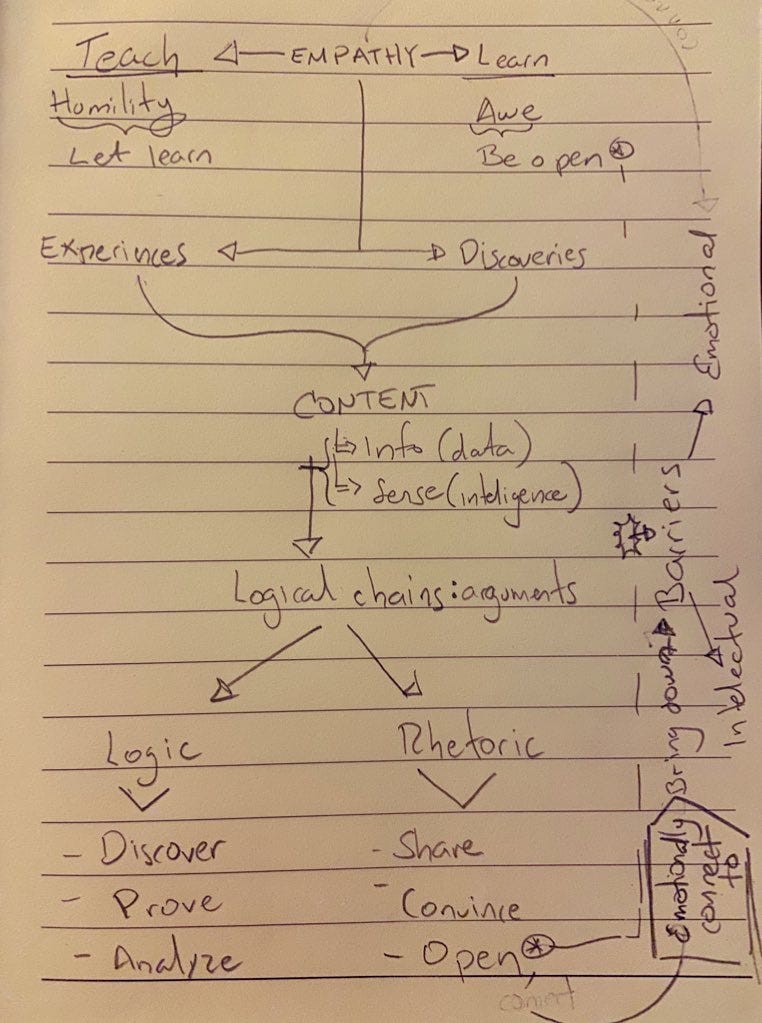 Teach ← EMPATHY → Learn
Homility Awe
Let learn Be open *
Experinces ← → Discoveries
CONTENT
⇒ Info (data)
⇒ Sense (inteligence)
Logical chains: arguments
Logic Rhetoric
- Discover - Share
- Prove - Convince
- Analyze - Open *
connect
Emotionally
connect
to
Bring down → Barriers → Emotional
Intelectual